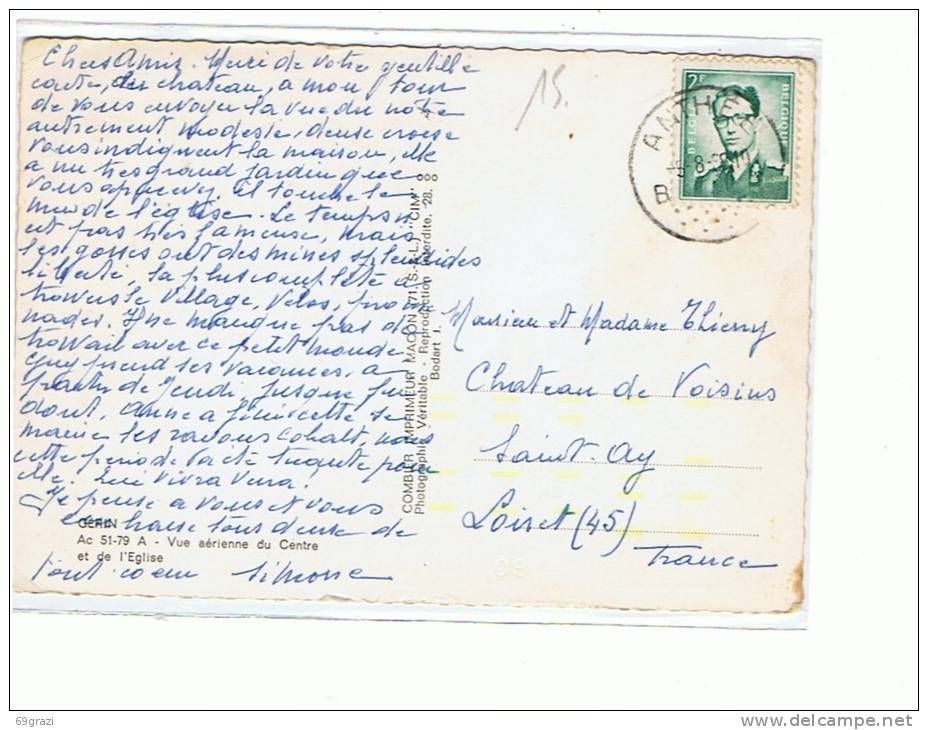 Chers Amis. Merci de votre gentille
carte, du chateau, a mon tour
de vous envoyer la vue du notre
autrement modeste, deuse croise
vous indiquent la maison, elle
a un tres grand jardin que
vous apercevez. Il touche le
mur de l'église. Le temps n
est pas très fameuse, mais
les gosses ont des mines splendides
liberté, la plus complète à
travers le village, velos, prome
nades. Il ne manque pas de
travail avec ce petit monde
qui prend ses vacances, a
partir de Jeudi, jusque
dont, Anne a finis cette se
maine les rayons cobalt, nous
cette periode
elle. Qui Vivra Verra!
Je pense a vous et vous
embrasse tous deuse de
tout coeur Simone
GERIN
Ac 51-79 A - Vue aérienne du Centre
et de l'Eglise
COMBIER IMPRIMEUR MACON (71. S.-&-L.) "CIM"
Photographie Véritable - Reproduction Interdite. -28.
Bodart I.
15.
2F
BELGIE
BELGIQUE
ANTHE
15-8-
B
Monsieur et Madame Thierry
Chateau de Voisins
Saint-Ay
Loiret (45)
France
69grazi
www.delcampe.net